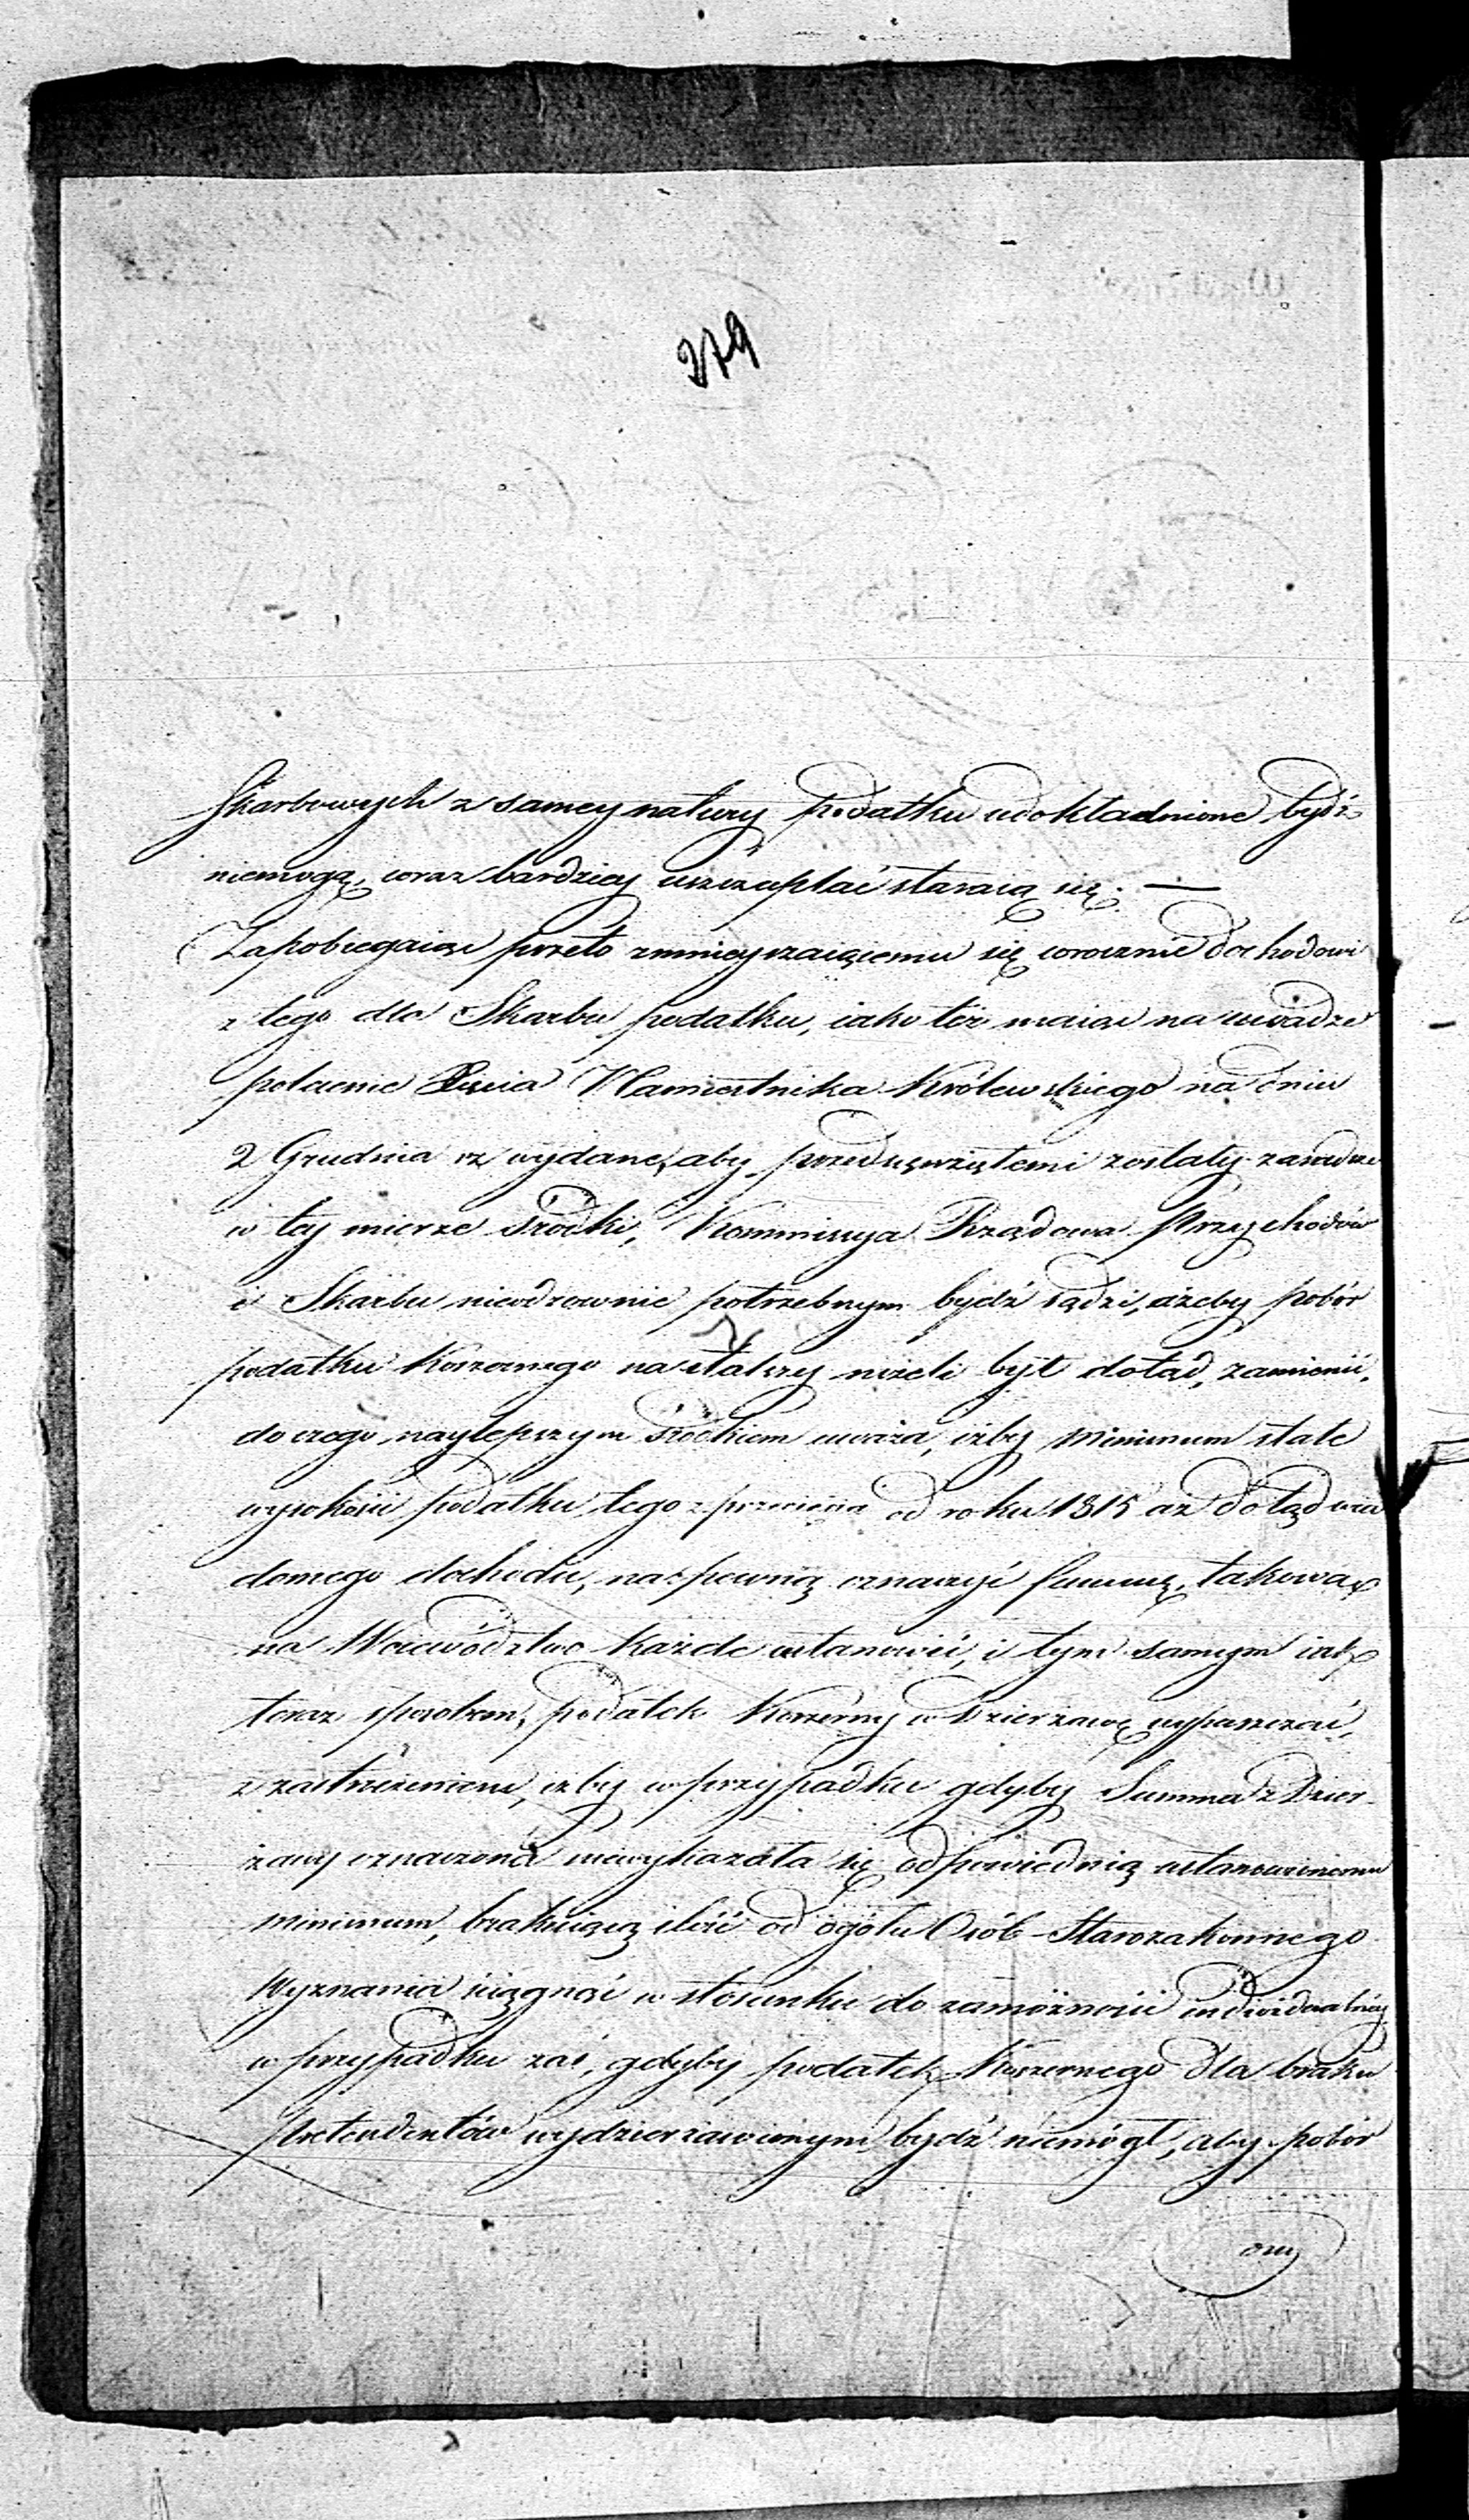 279
Skarbowych z samey natury podatku udokładnione bydź
niemogą, coraz bardziey uszczuplać staraią się. —
Zapobiegaiąc przeto zmnieyszaiącemu się corocznie dochodowi
z tego dla Skarbu podatku, iako też maiąc na uwadze
polecenie Xięcia Namiestnika Królewskiego na dniu
2 Grudnia rz wydane, aby przedsięwziętemi zostały zaradcze
w tey mierze srodki, Kommissya Rządowa Przychodów
i Skarbu nieodzownie potrzebnym bydź sądzi, ażeby pobór
podatku Koszernego na stalszy niżeli był dotąd, zamienić,
do czego naylepszym srodkiem uważa, iżby Minimum stałe
wysokości podatku tego z przecięcia od roku 1815 aż dotąd wia
domego dochodu, na pewną oznaczyć summę, takową
na Woiewództwo każde ustanowić, i tym samym iak
teraz sposobem, podatek Koszerny w dzierżawę wypuszczać,
z zastrzeżeniem, iżby w przypadku gdyby Summa z Dzier-
żawy oznaczona niewykazała się odpowiednią ustanowionemu
minimum, brakuiącą ilość od ogółu Osób Starozakonnego
Wyznania ściągnąć w stosunku do zamożności indiwidualney
w przypadku zaś, gdyby podatek Koszernego dla braku
pretendentów wydzierżawionym bydź niemógł, aby pobór